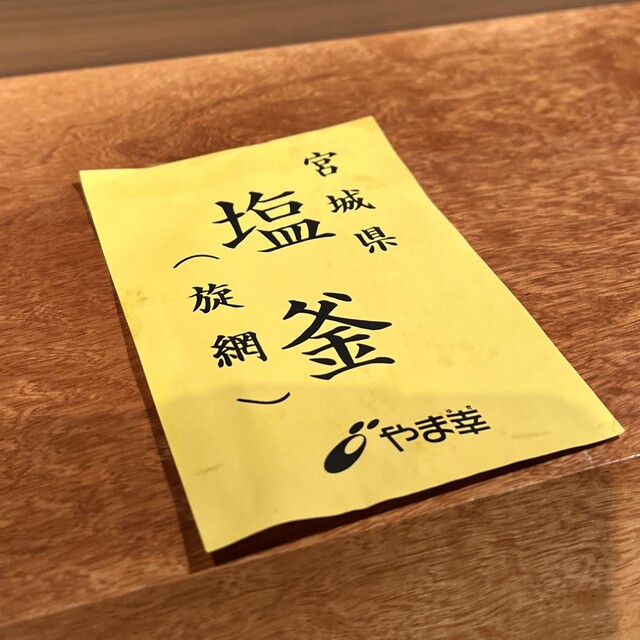 宮城県
塩釜
（旋網）
やま幸